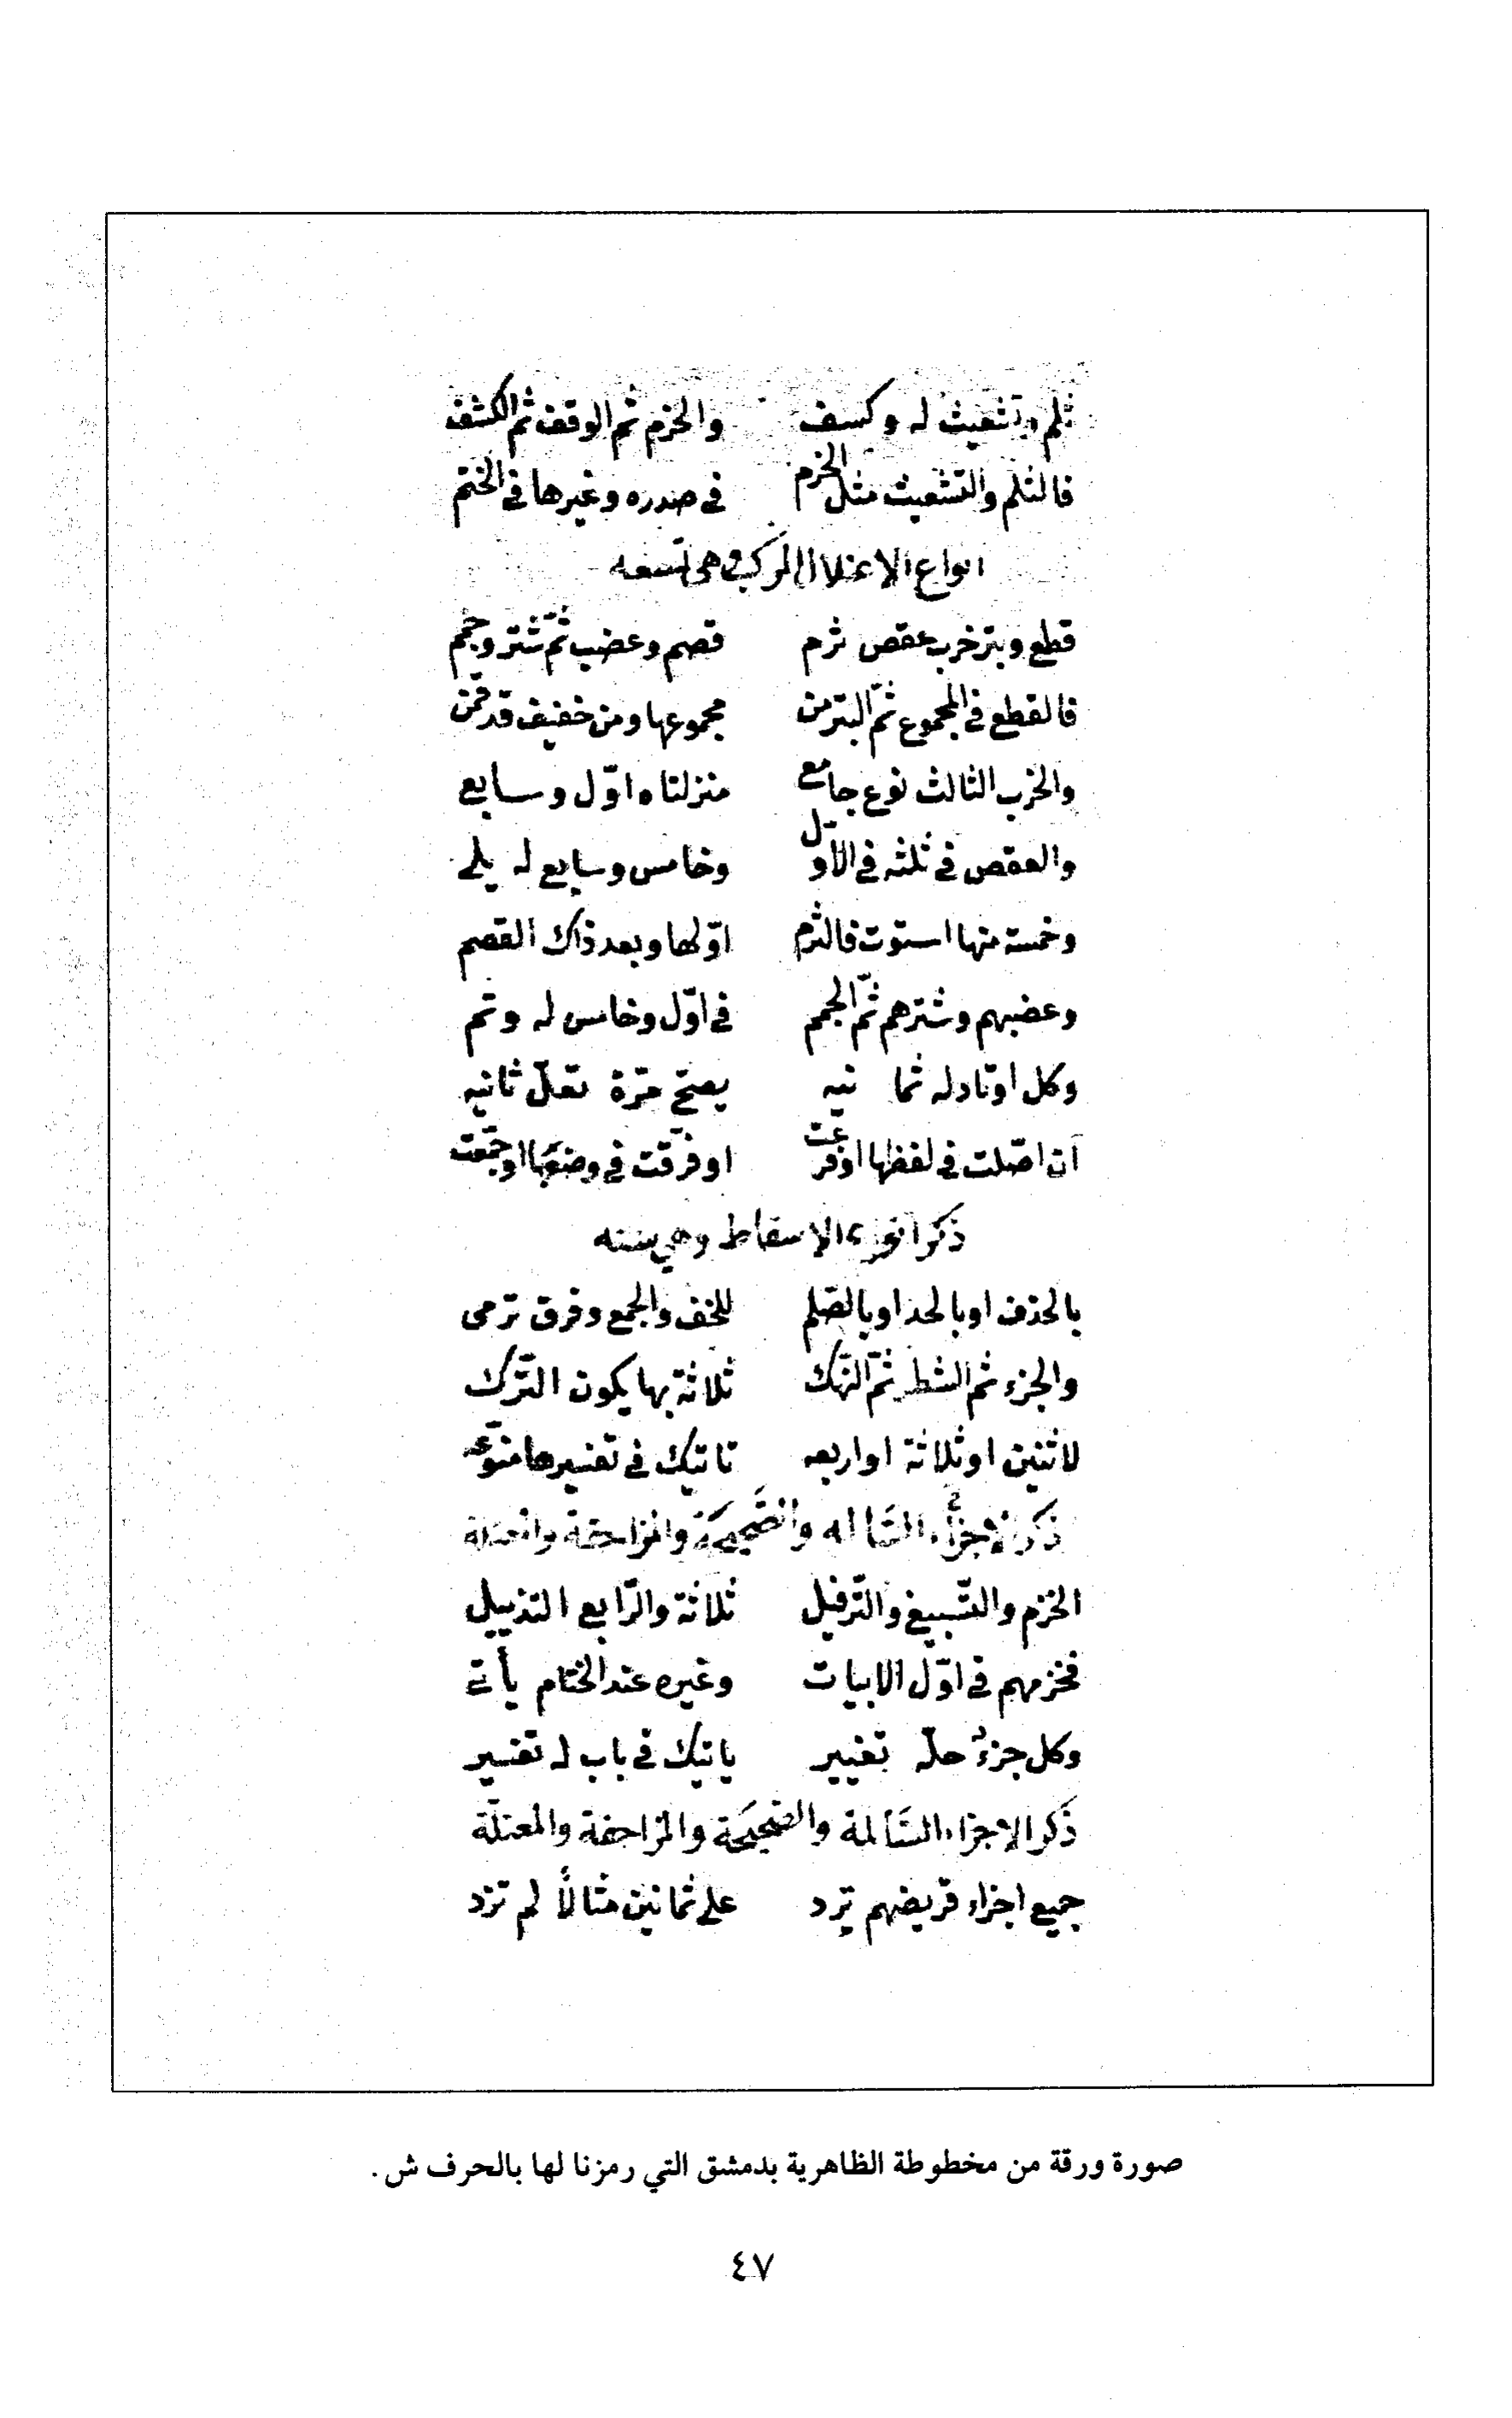 ثلم وتشعيث له وكسف والخزم ثم الوقف ثم الكشف
فالثلم والتشعيث مثل الخرم في صدره وغيرها في الختم
انواع الاعتلال المركب وهي تسعه
قطع وبتر خرب عقص ثرم قصم وعضب ثمّ شتر وجمم
فالقطع في المجموع ثمّ البتر من مجموعها ومن خفيف قد قمن
والخرب الثالث نوع جامع منزلتاه اوّل وسابع
والعقص في ثلثه في الاوّل وخامس وسابع له يلي
وخمسة منها استوت فالثرم اوّلها وبعد ذاك القصم
وعضبهم وشترهم ثمّ الجمم في اوّل وخامس له وتم
وكل اوتاد له ثمانيه يصحّ مرّة تعلّ ثانيه
ان اصّلت في لفظها او فرعت او فرّقت في وضعها او جمّعت
ذكر انواع الاسقاط وهي سته
بالحذف او بالحد او بالصّلم للخف والجمع وفرق ترمى
والجزء ثم الشطر ثمّ النّهك ثلاثة بها يكون التّرك
لاثنين او ثلاثة او اربعه تاتيك في تفسيرها منوّعه
ذكر الاجزاء السّالمه والصّحيحة والمزاحفة والمعتلة
الخزم والتّسبيغ والتّرفيل ثلاثة والرّابع التذييل
فخزمهم في اوّل الابيات وغيره عند الختام يأتي
وكل جزء حلّه تغيير ياتيك في باب له تفسير
ذكر الاجزاء السّالمة والصّحيحة والمزاحفة والمعتلّة
جميع اجزاء قريضهم ترد على ثمانين مثالاً لم تزد
صورة ورقة من مخطوطة الظاهرية بدمشق التي رمزنا لها بالحرف ش .
٤٧